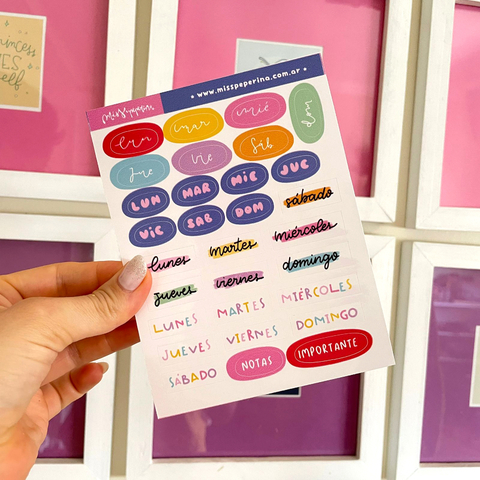 princess
self
misspeperina
• www.misspeperina.com.ar •
lun mar mié dom
jue vie sáb
LUN MAR MIE JUE
VIE SAB DOM
sábado
lunes martes miércoles
jueves viernes domingo
LUNES MARTES MIÉRCOLES
JUEVES VIERNES DOMINGO
SÁBADO NOTAS IMPORTANTE